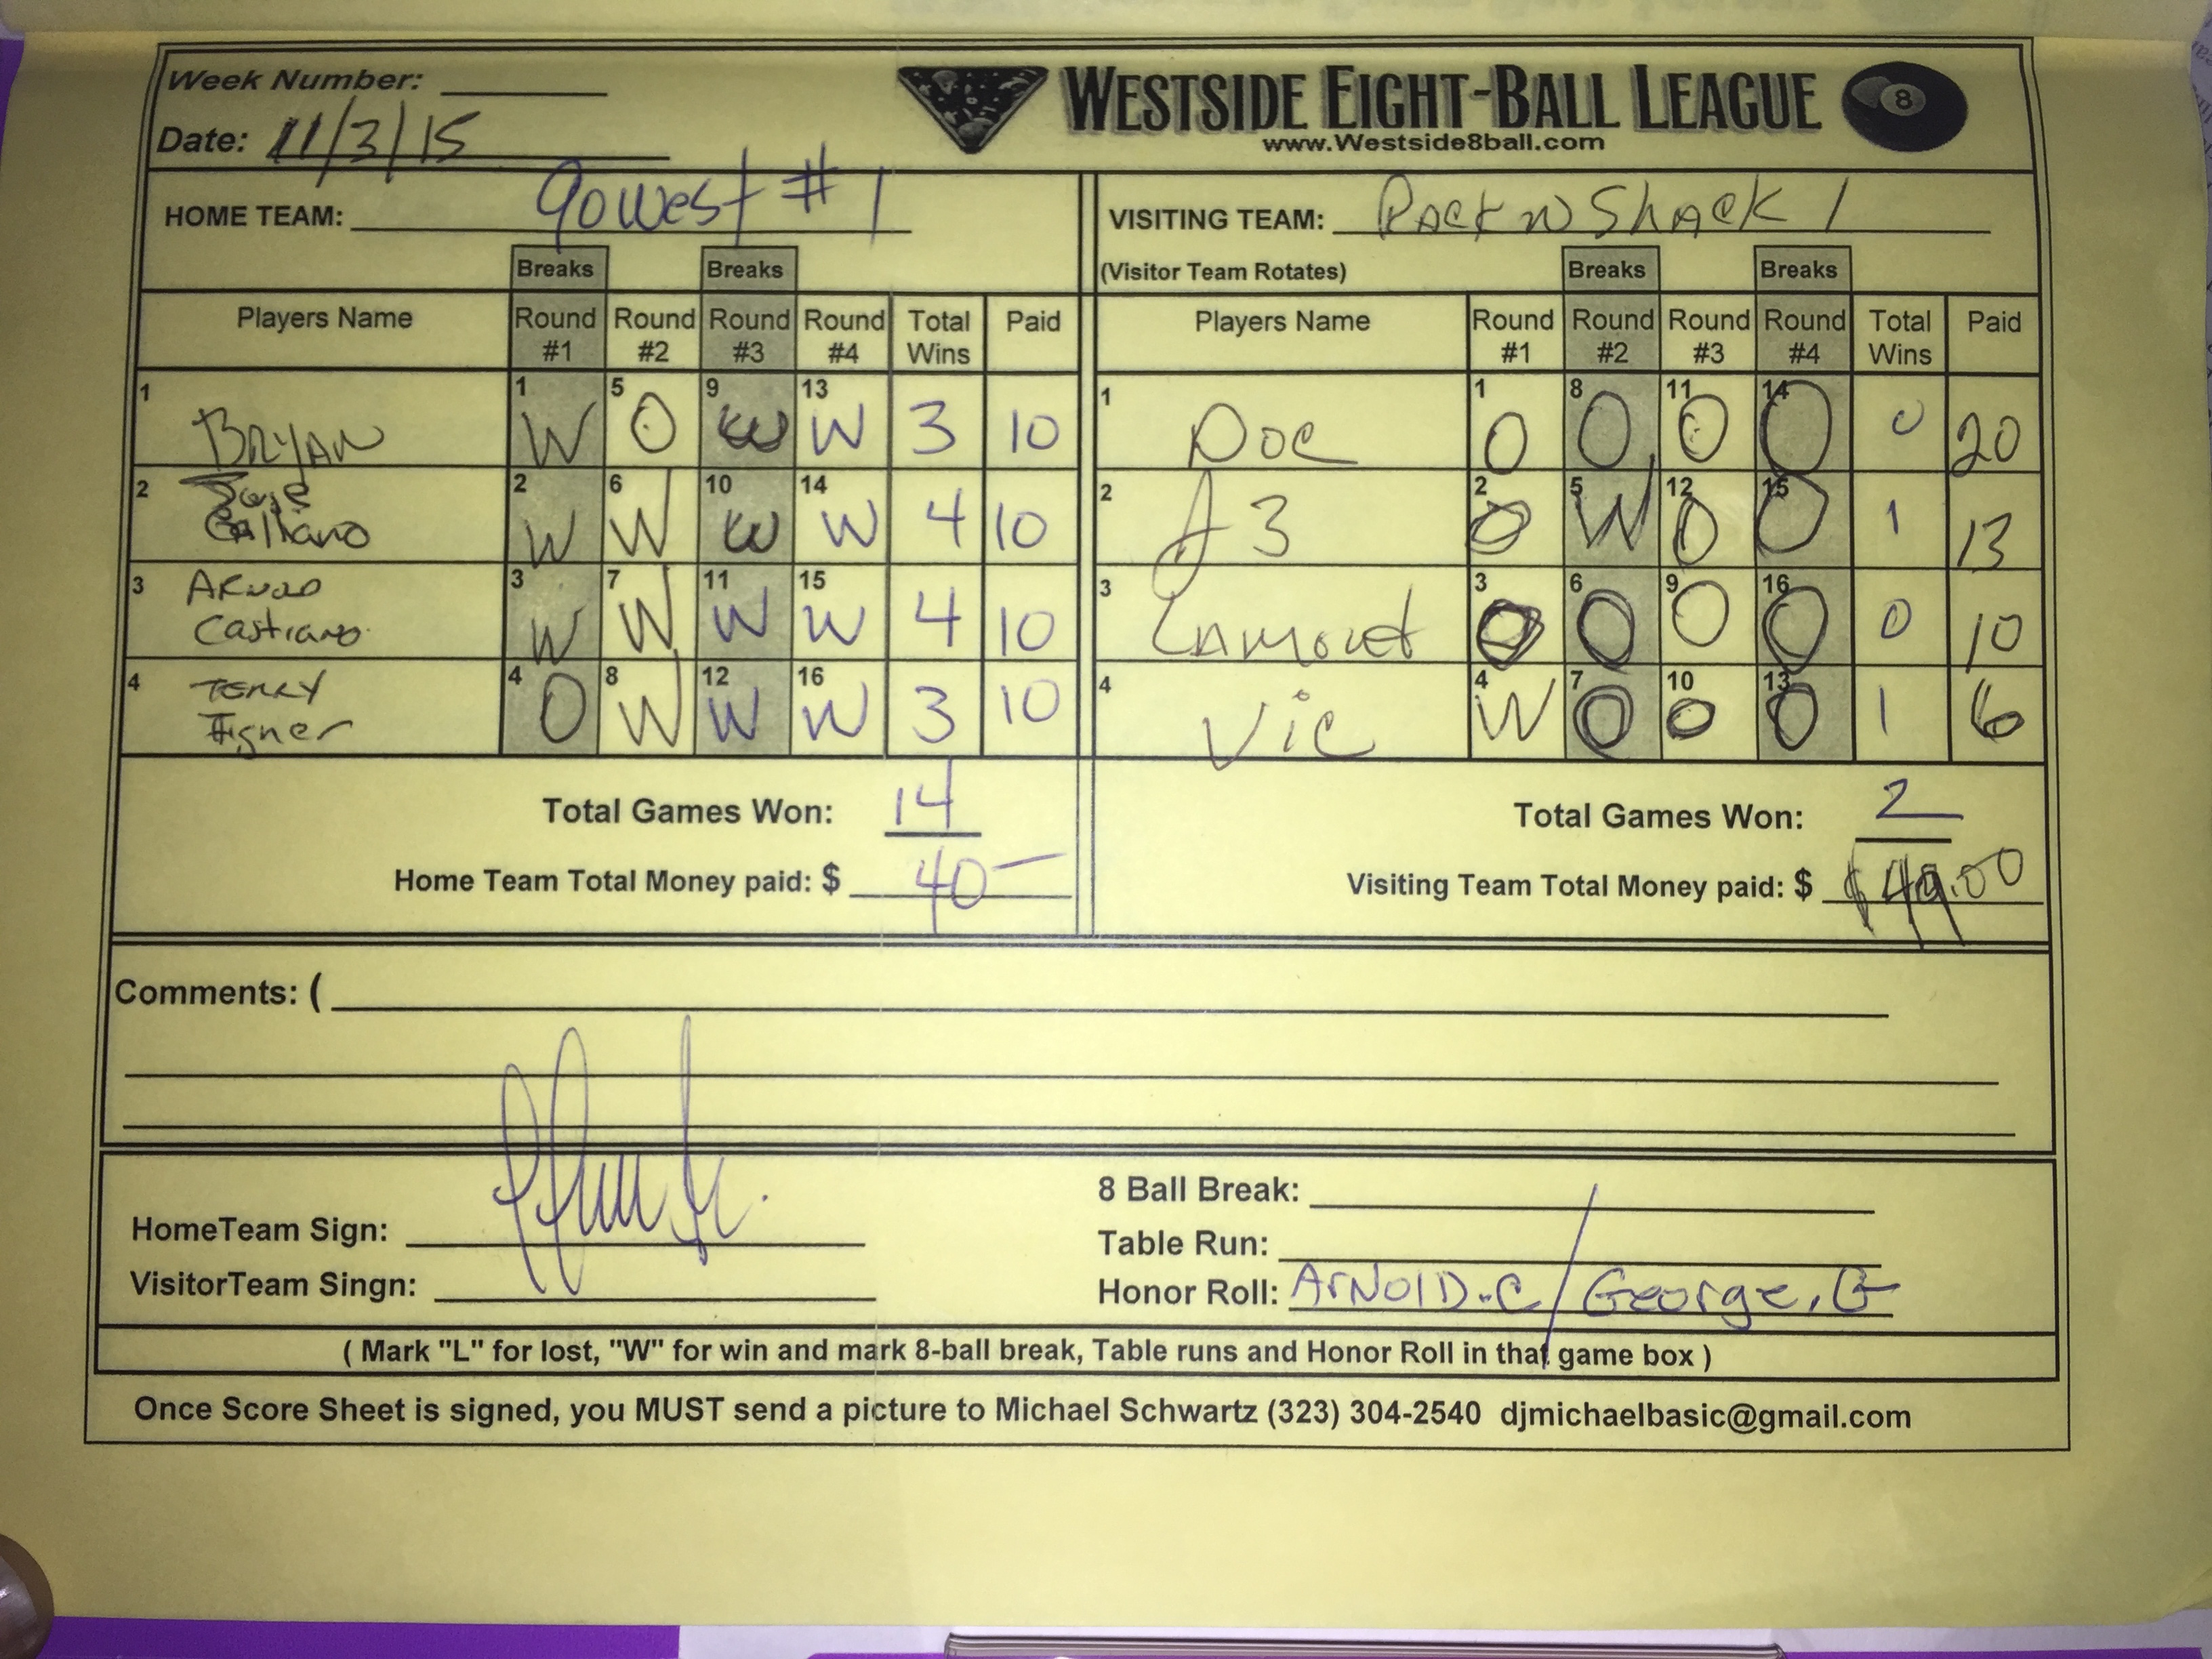 Week Number:
WESTSIDE EIGHT-BALL LEAGUE 8
Date: 11/3/15
www.Westside8ball.com
HOME TEAM: gowest #1 VISITING TEAM: RACK N SHACK 1
Breaks Breaks (Visitor Team Rotates) Breaks Breaks
Players Name Round #1 Round #2 Round #3 Round #4 Total Wins Paid Players Name Round #1 Round #2 Round #3 Round #4 Total Wins Paid
1 BRYAN 1 W 5 O 9 W 13 W 3 10 1 Doc 1 O 8 O 11 O 14 O 0 20
2 6 W 2 W 10 W 14 W 4 10 2 J3 2 O 5 W 12 O 15 O 1 13
3 3 W 7 W 11 W 15 W 4 10 3 Lamont 3 O 6 O 9 O 16 O 0 10
4 TERRY 4 O 8 W 12 W 16 W 3 10 4 Vic 4 W 7 O 10 O 13 O 1 6
Total Games Won: 14 Total Games Won: 2
Home Team Total Money paid: $ 40 — Visiting Team Total Money paid: $ $49.00
Comments: (
HomeTeam Sign:
VisitorTeam Singn:
8 Ball Break:
Table Run:
Honor Roll: ArNolD.C / George, G
( Mark "L" for lost, "W" for win and mark 8-ball break, Table runs and Honor Roll in that game box )
Once Score Sheet is signed, you MUST send a picture to Michael Schwartz (323) 304-2540 djmichaelbasic@gmail.com